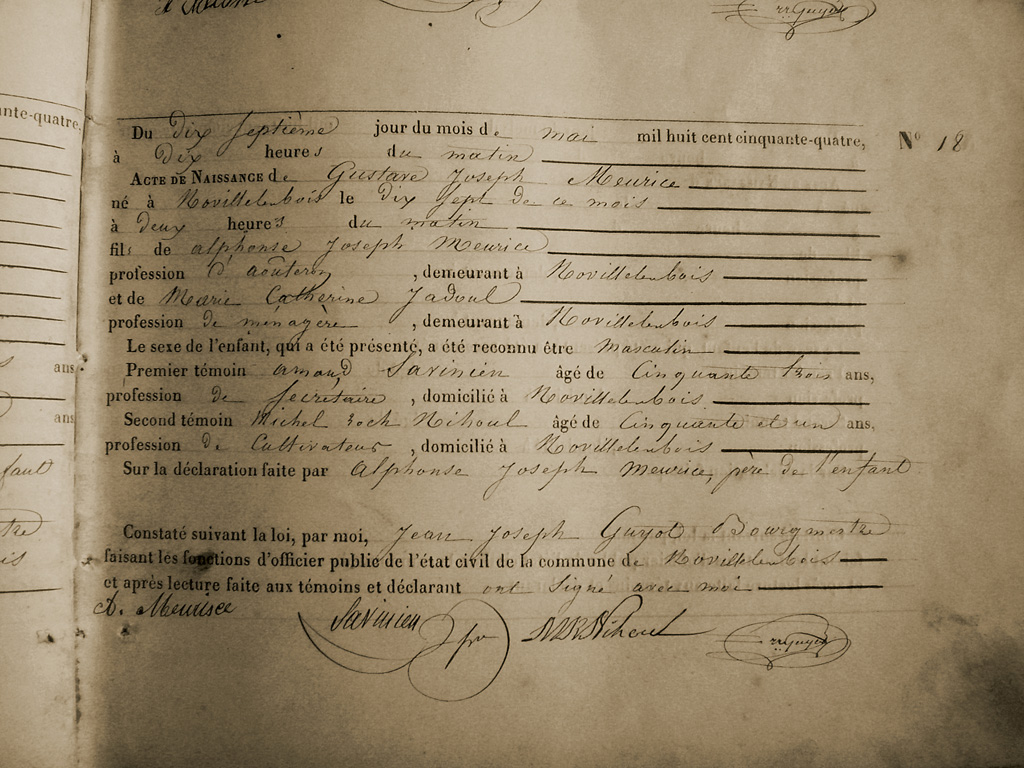 Guyot
nte-quatre,
Du dix septième jour du mois de mai mil huit cent cinquante-quatre, N° 18
à dix heures du matin
ACTE DE NAISSANCE de Gustave Joseph Meurice
né à Novillelesbois le dix sept de ce mois
à deux heures du matin
fils de alphonse Joseph Meurice
profession d', demeurant à Novillelesbois
et de Marie Catherine Jadoul
profession de ménagère, demeurant à Novillelesbois
Le sexe de l'enfant, qui a été présenté, a été reconnu être masculin
ans
Premier témoin amand Savinien âgé de cinquante trois ans,
profession de secrétaire, domicilié à Novillelesbois
ans
Second témoin Michel Roch Nihoul âgé de cinquante et un ans,
profession de Cultivateur, domicilié à Novillelesbois
faut
Sur la déclaration faite par alphonse Joseph meurice, père de l'enfant
tre
Constaté suivant la loi, par moi, Jean Joseph Guyot Bourgmestre
is
faisant les fonctions d'officier public de l'état civil de la commune de Novillelesbois
et après lecture faite aux témoins et déclarant ont signé avec moi
A. Meurice Savinien MR Nihoul Guyot